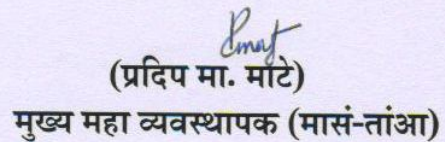 (प्रदिप मा. मोटे)
मुख्य महा व्यवस्थापक (मासं-तांआ)